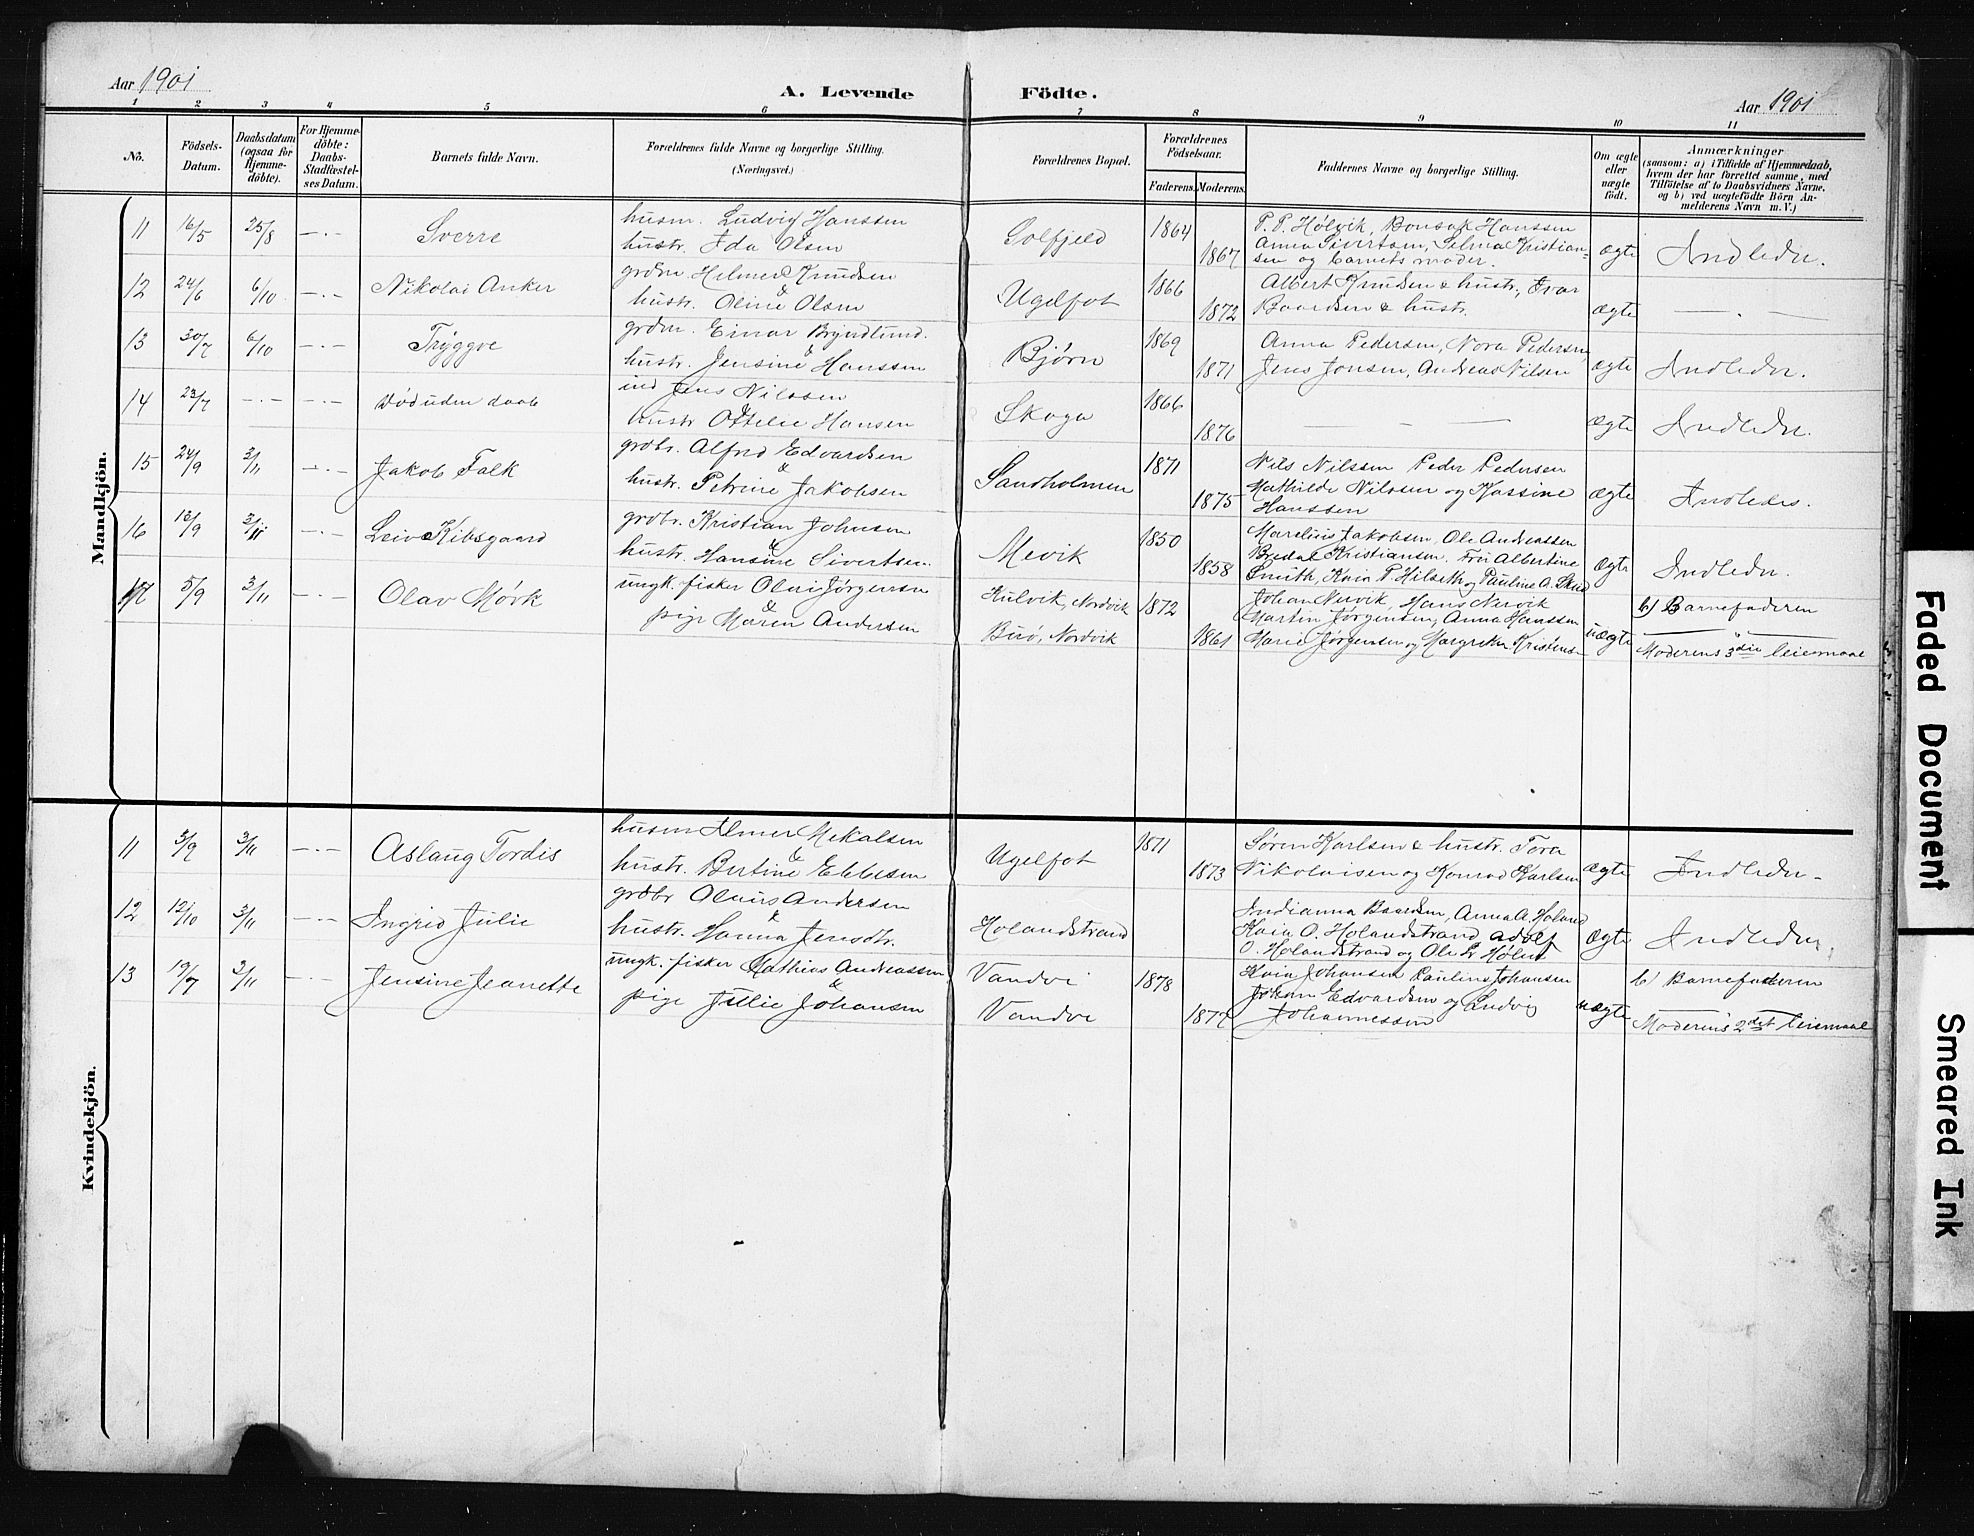 Aar 1901
A. Levende Födte.
Aar 1901
1 2 3 4 5 6 7 8 9 10 11
No.
Födsels-Datum.
Daabsdatum (ogsaa for Hjemme-döbte).
For Hjemme-döbte: Daabs-Stadfæstel-ses Datum.
Barnets fulde Navn.
Forældrenes fulde Navne og borgerlige Stilling. (Næringsvei.)
Forældrenes Bopæl.
Forældrenes Födselsaar.
Faderens. Moderens.
Faddernes Navne og borgerlige Stilling.
Om ægte eller uægte födt.
Anmærkninger
(saasom: a) i Tilfælde af Hjemmedaab,
hvem der har forrettet samme, med
Tilföielse af to Daabsvidners Navne,
og b) ved uægtefödte Börn An-
melderens Navn m. V.)
Mandkjön.
11 16/5 25/8 -.- Sverre husm. Ludvig Hanssen Solfjeld 1864 P. P. Hølvik, Bonsak Hanssen
hustr. Ida Olsen 1867 Anna Sivertsen, Selma Kristian-
sen og barnets moder. ægte Indledn.
12 24/6 6/10 -.- Nikolai Anker grdm. Helmer Knudsen Ugelfot 1866 Albert Knudsen & hustr., Ivar
& hustr. Oline Olsen 1872 Baardsen & hustr. ægte - . -
13 30/7 6/10 -.- Tryggve grdm. Einar Bryndlund. Bjørn 1869 Anna Pedersen, Nora Pedersen
& hustr. Jensine Hanssen 1871 Jens Jonsen, Andreas Nilsen ægte Indledn.
14 23/7 -.- -.- død uden daab ind Jens Nilssen Skoga 1866
& hustr Ottelie Hansen 1876 - - - ægte Indledn.
15 24/9 3/11 -.- Jakob Falk grdbr. Alfred Edvardsen Sandholmen 1871 Nils Nilssen Peder Pedersen
& hustr. Petrine Jakobsen 1875 Mathilde Nilssen og Kassine
Hanssen ægte Indledes.
16 13/9 3/11 -.- Leiv Kibsgaard grdbr. Kristian Johnsen Mevik 1850 Marelius Jakobsen, Ole Andreassen
& hustr. Hansine Sivertsen. 1858 Bredal Kristiansen. Frk Albertine
Smith, Kaia P. Hilseth og Pauline A. ægte Indledn.
17 5/9 3/11 -.- Olav Mörk ungk. fisker Olai Jørgensen Kulvik, Nordvik 1872 Johan Nervik, Hans Nervik b) Barnefaderen
& pige Maren Andersen Buö, Nordvik 1861 Martin Jørgensen, Anna Hanssen
Marie Jørgensen og Margrethe Kristensen uægte Moderens 3die leiermaal
Kvindekjön.
11 3/9 3/11 -.- Aslaug Tordis husm Elmer Mekalsen Ugelfot 1871 Søren Karlsen & hustr. Tora
& hustr. Bertine Ebbesen 1873 Nikolaisen og Konrad Karlsen ægte Indledn.
12 12/10 3/11 -.- Ingrid Julie grdbr Oluus Andersen Holandstrand Indianna Baardsen, Anna A. Holand
& hustr. Hanna Jensdtr. Kaia O. Holandstrand Adolf
O. Holandstrand og Ole Hølvik ægte Indledn.
13 19/7 3/11 Jensine Jeanette ungk. fisker Mathias Andreassen Vandve 1878 Kaia Johansen Pauline Johansen b) Barnefaderen
& pige Julie Johansen Vandve 1877 Johan Edvardsen og Ludvig
Johannessen uægte Moderens 2det leiermaal
Faded Document
Smeared Ink